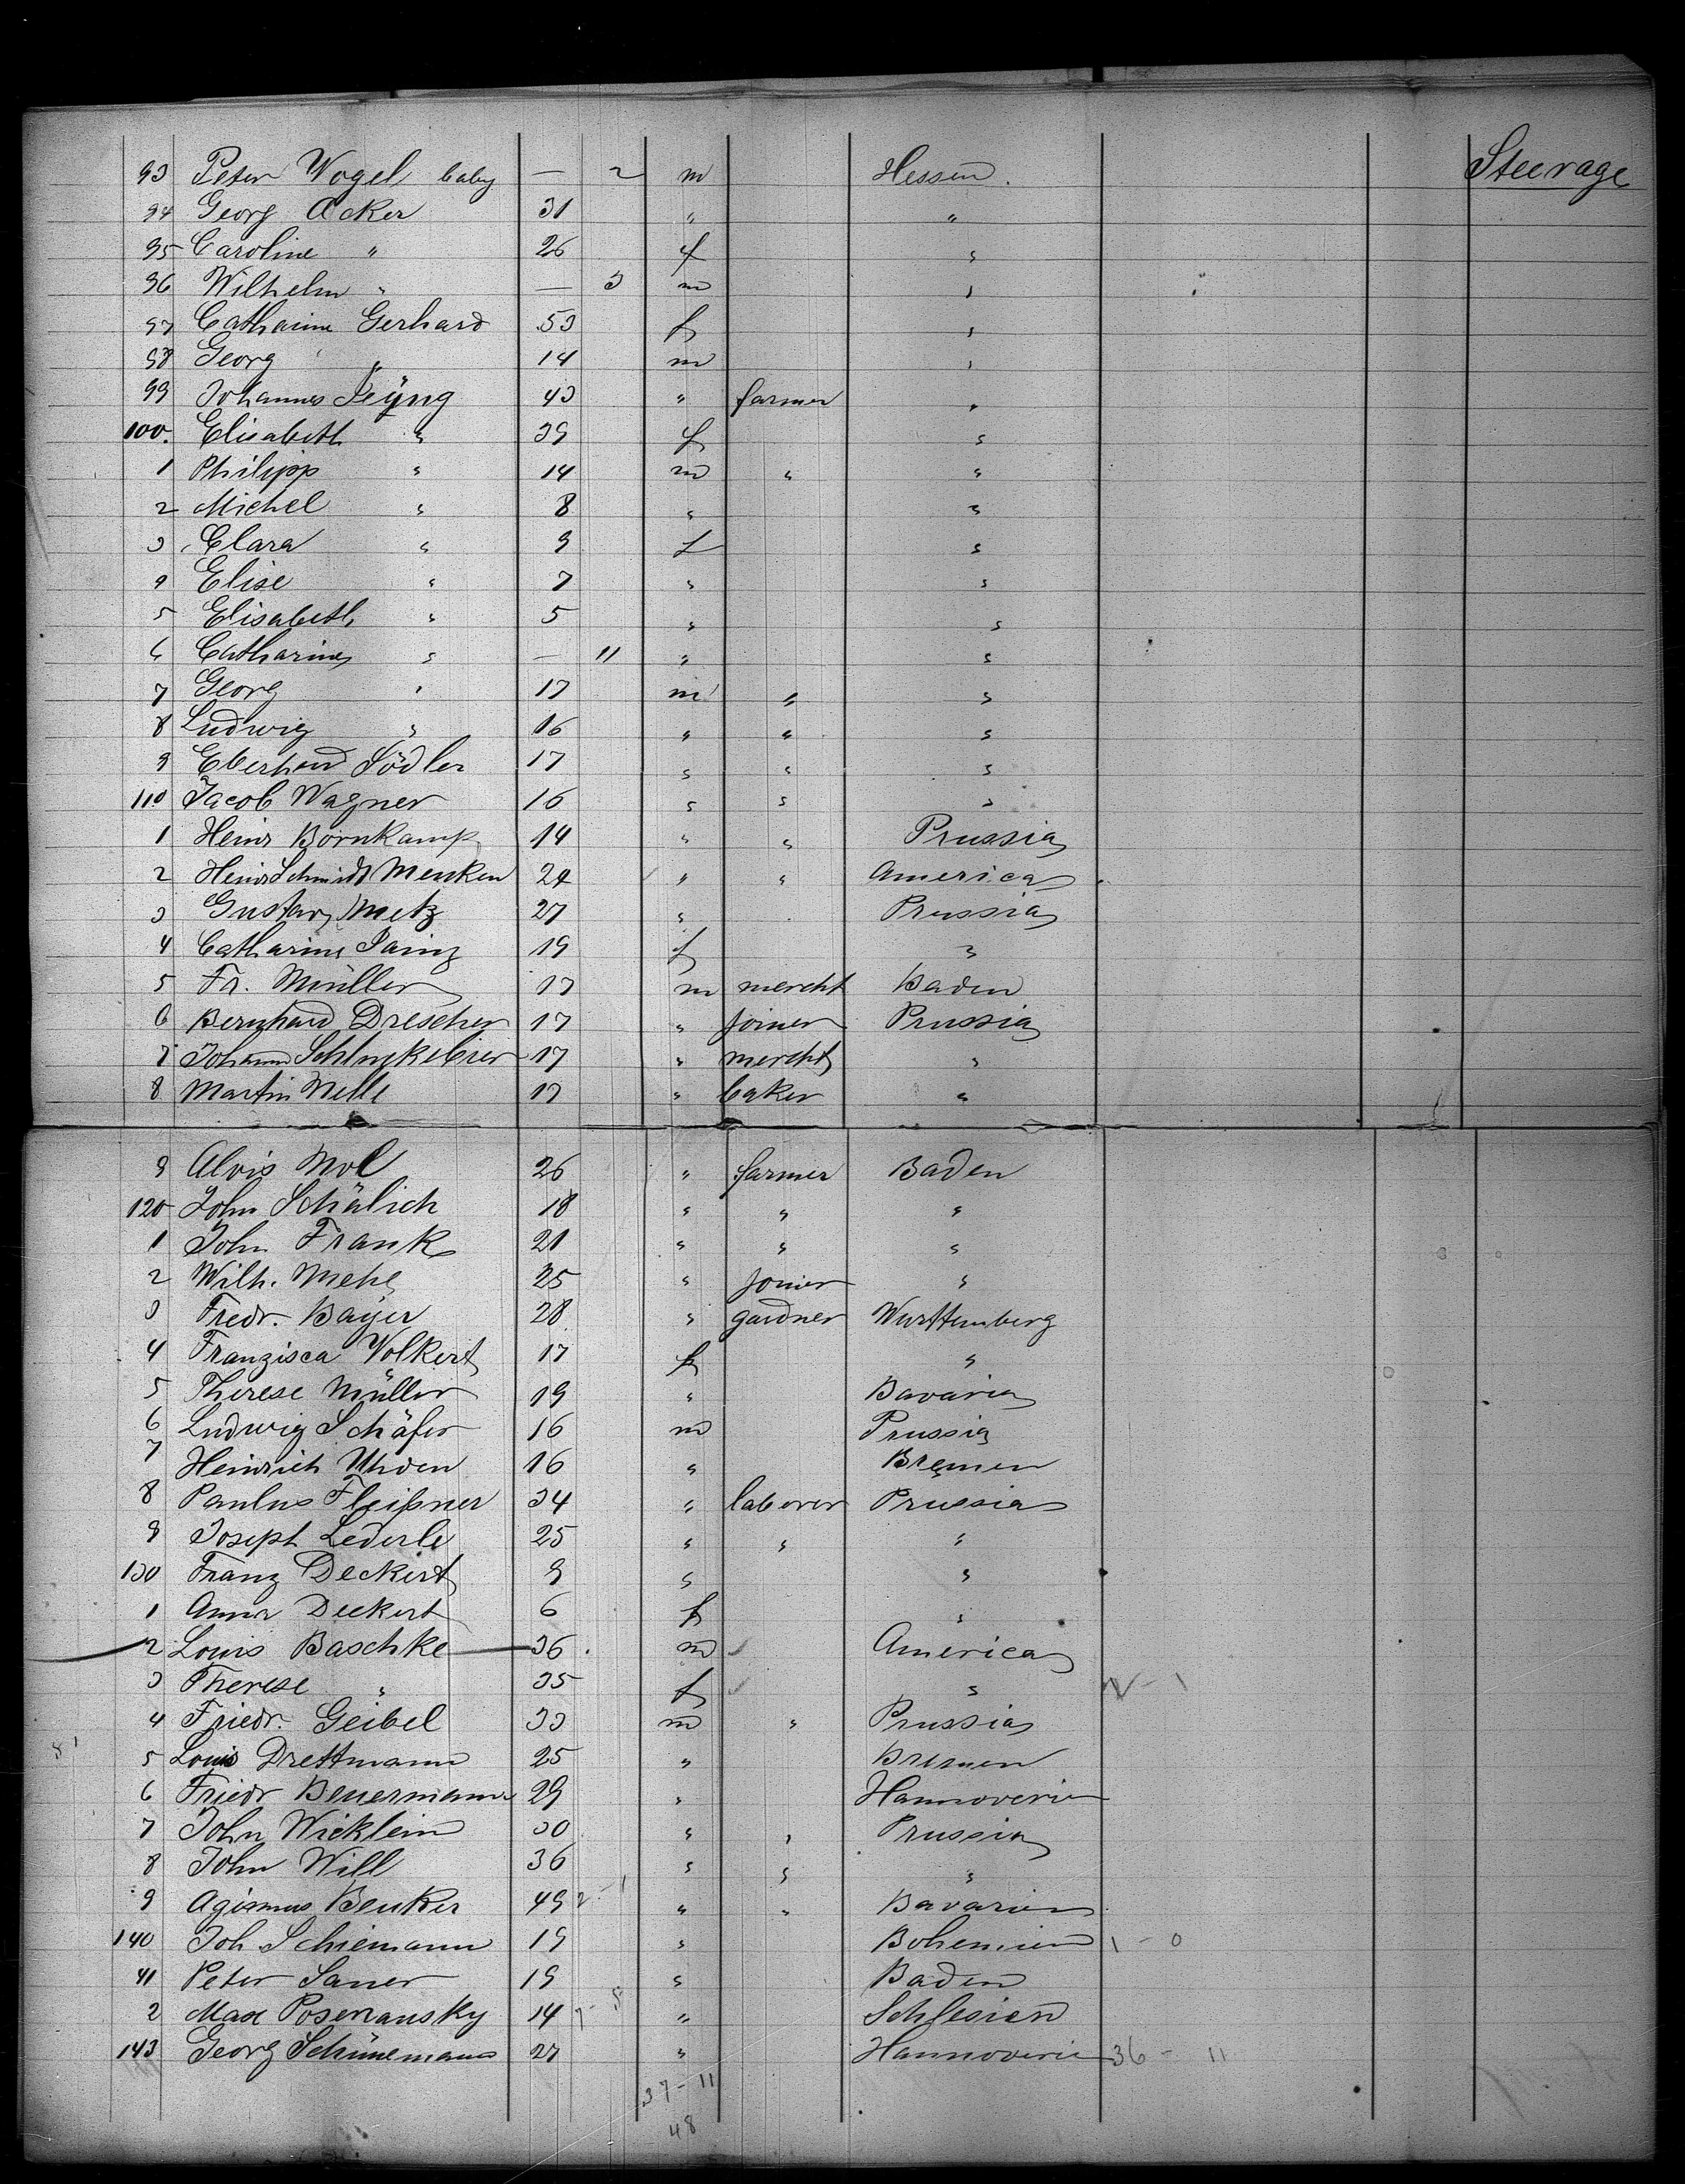 93 Peter Vogel baby — 2 m Hessen. Steerage
94 Georg Acker 31 " "
95 Caroline " 26 f "
96 Wilhelm " — 3 m "
97 Catharine Gerhard 53 f "
98 Georg " 14 m "
99 Johannes 43 " farmer "
100. Elisabeth " 39 f "
1 Philipp " 14 m " "
2 Michel " 8 " "
3 Clara " 9 f "
4 Elise " 7 " "
5 Elisabeth " 5 " "
6 Catharine " — 11 " "
7 Georg " 17 m " "
8 Ludwig " 16 " " "
9 Eberhard Södler 17 " " "
110 Jacob Wagner 16 " " "
1 Heinr Bornkamp 14 " " Prussia
2 Heinr Schmidt Menken 24 " " America
3 Gustav Metz 27 " Prussia
4 Catharine 19 f "
5 Fr. Müller 17 m mercht Baden
6 Bernhard Drescher 17 " joiner Prussia
7 Johann Schluckebier 17 " mercht "
8 Martin Nelle 17 " baker "
9 Alois Mol 26 " farmer Baden
120 John Schälich 18 " " "
1 John Frank 21 " " "
2 Wilh. 25 " joiner "
3 Fredr. Bayer 28 " gardner Württemberg
4 Franzisca Volkert 17 f "
5 Therese Müller 19 " Bavaria
6 Ludwig Schäfer 16 m Prussia
7 Heinrich Uhden 16 " Bremen
8 Paulus Fleißner 34 " laborer Prussia
9 Joseph Lederle 25 " " "
130 Franz Deckert 9 " "
1 Anna Deckert 6 f "
2 Louis Baschke 36 m America
3 Therese " 35 f " - 1
4 Friedr. Geibel 33 m " Prussia
5 Louis Drettmann 25 " Bremen
6 Friedr Beuermann 29 " Hannoverie
7 John Wicklein 30 " " Prussia
8 John Will 36 " " "
9 Agismus Benker 49 2 - 1 " " Bavaria
140 Joh Schiemann 19 " Bohemien 1 - 0
41 Peter Sauer 19 " Baden
2 Max Posenansky 14 7 - 5 " Schlesien
143 Georg Schünemann 27 " Hannoverie 36 - 11
37 - 11
48